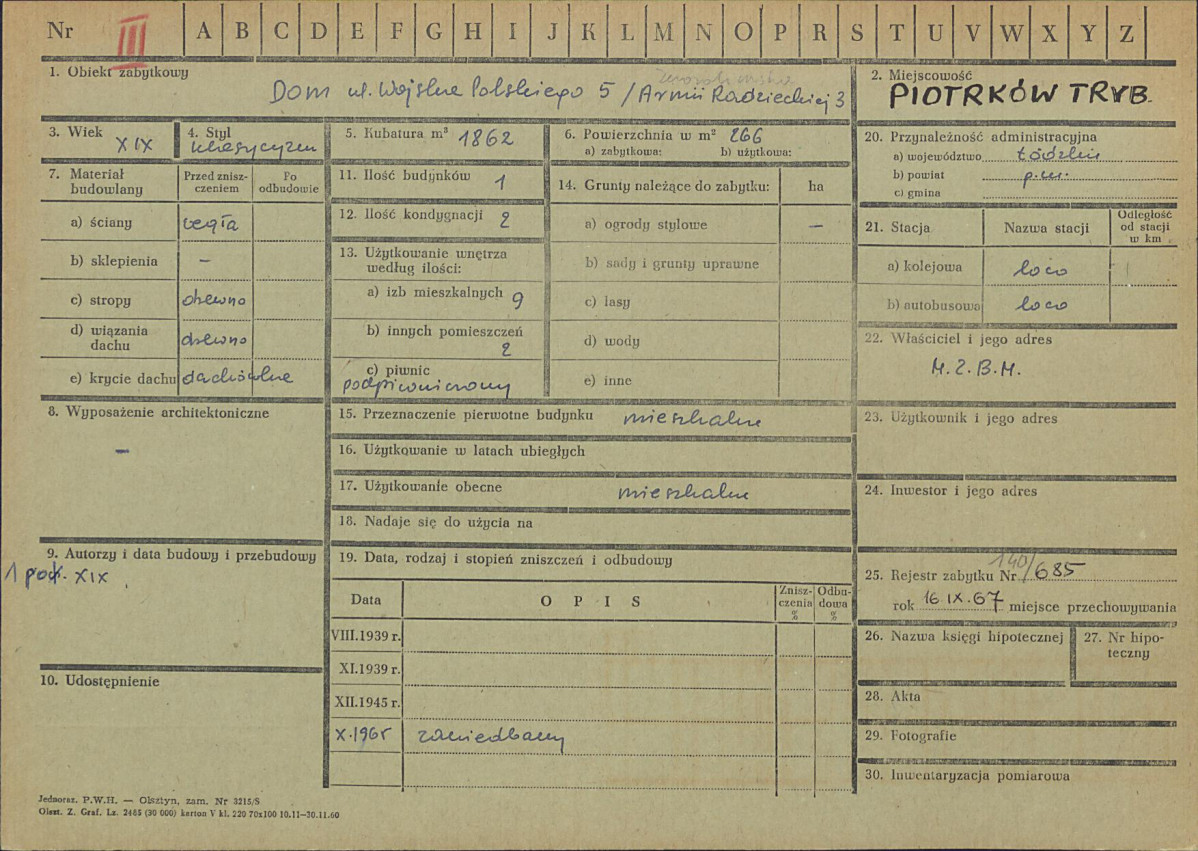 Nr III A B C D E F G H I J K L M N O P R S T U V W X Y Z
1. Obiekt zabytkowy
Dom ul. Wojska Polskiego 5 / Armii Radzieckiej 3
2. Miejscowość
PIOTRKÓW TRYB.
3. Wiek
XIX
4. Styl
klasycyzm
5. Kubatura m³ 1862
6. Powierzchnia w m² 266
a) zabytkowa: b) użytkowa:
7. Materiał budowlany
Przed zniszczeniem
Po odbudowie
a) ściany cegła
b) sklepienia –
c) stropy drewno
d) wiązania dachu drewno
e) krycie dachu dachówka
8. Wyposażenie architektoniczne
–
9. Autorzy i data budowy i przebudowy
1 poł. XIX
10. Udostępnienie
11. Ilość budynków 1
12. Ilość kondygnacji 2
13. Użytkowanie wnętrza
według ilości:
a) izb mieszkalnych 9
b) innych pomieszczeń
2
c) piwnic
podpiwniczony
14. Grunty należące do zabytku: ha
a) ogrody stylowe –
b) sady i grunty uprawne
c) lasy
d) wody
e) inne
15. Przeznaczenie pierwotne budynku mieszkalne
16. Użytkowanie w latach ubiegłych
17. Użytkowanie obecne mieszkalne
18. Nadaje się do użycia na
19. Data, rodzaj i stopień zniszczeń i odbudowy
Data OPIS Zniszczenia % Odbudowa %
VIII.1939 r.
XI.1939 r.
XII.1945 r.
X.1965 zaniedbany
20. Przynależność administracyjna
a) województwo Łódzkie
b) powiat p.m.
c) gmina
21. Stacja Nazwa stacji Odległość od stacji w km
a) kolejowa loco
b) autobusowa loco
22. Właściciel i jego adres
M.Z.B.M.
23. Użytkownik i jego adres
24. Inwestor i jego adres
25. Rejestr zabytku Nr 140/685
rok 16 IX.67 miejsce przechowywania
26. Nazwa księgi hipotecznej
27. Nr hipoteczny
28. Akta
29. Fotografie
30. Inwentaryzacja pomiarowa
Jednoraz. P.W.H. — Olsztyn, zam. Nr 3215/S
Olszt. Z. Graf. Lz. 2485 (30 000) karton V kl. 220 70x100 10.11—30.11.60